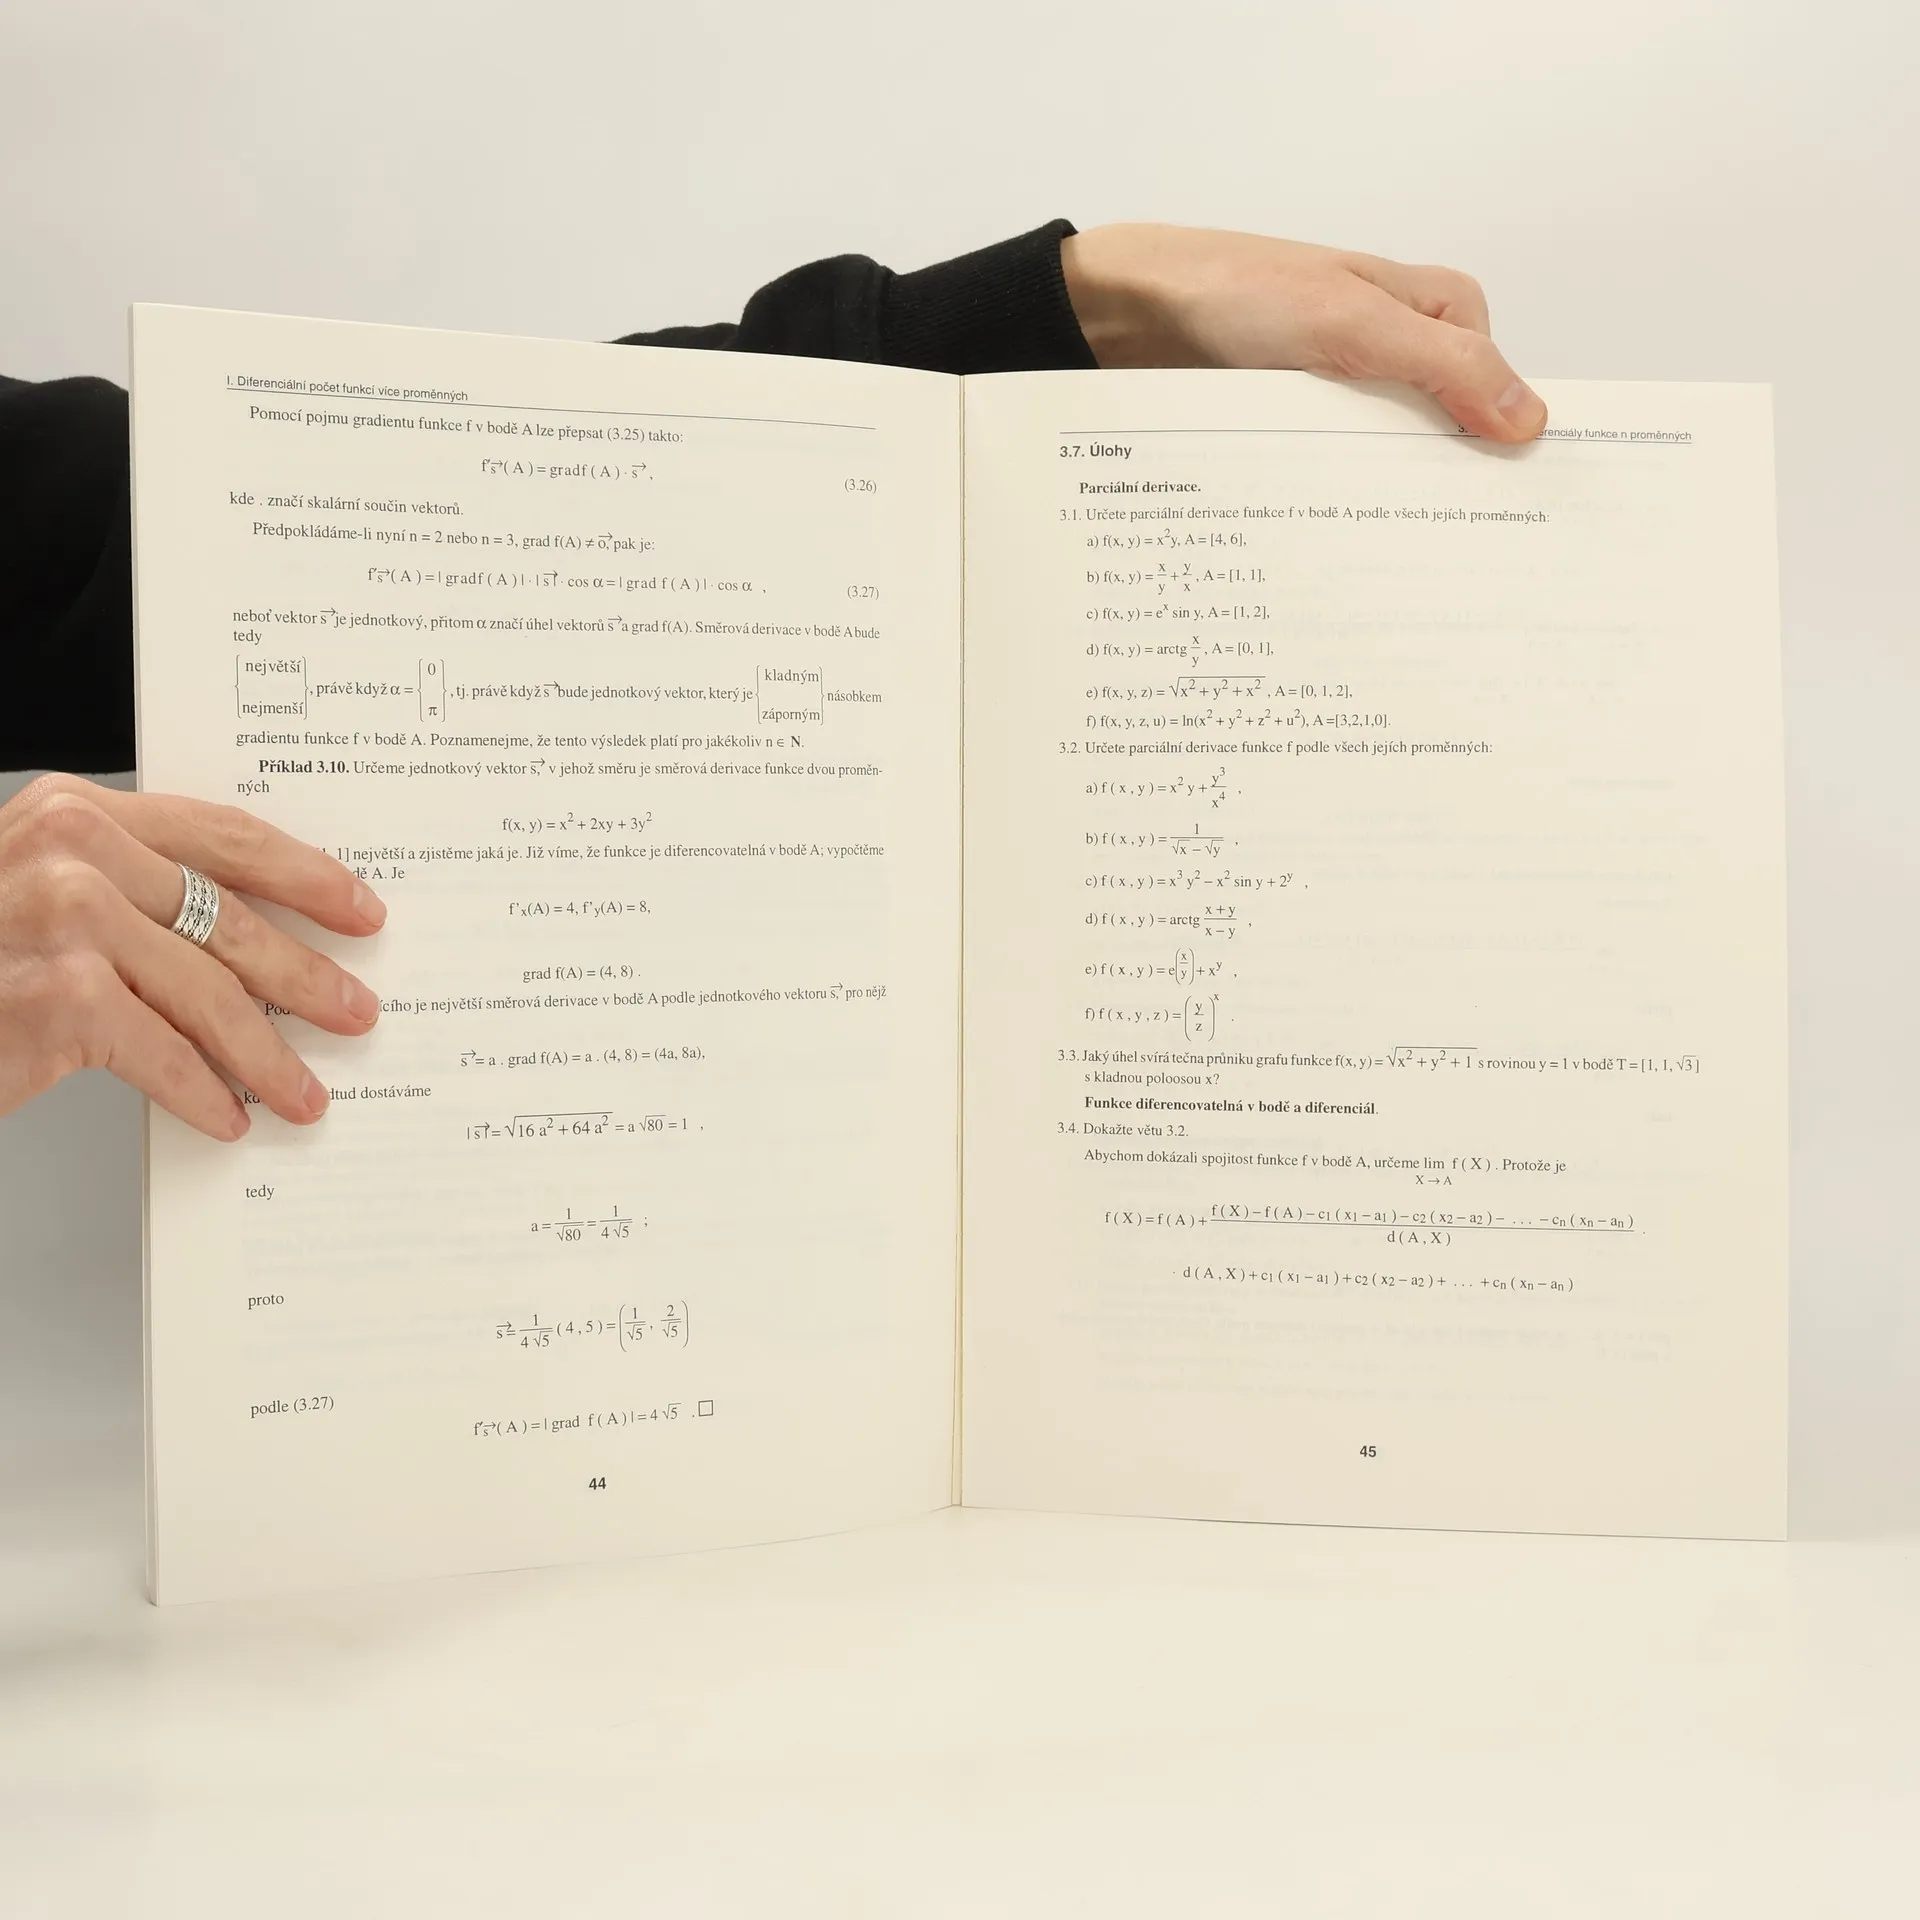 I. Diferenciální počet funkcí více proměnných
Pomocí pojmu gradientu funkce f v bodě A lze přepsat (3.25) takto:
f's→( A ) = gradf ( A ) · s→ ,
(3.26)
kde . značí skalární součin vektorů.
Předpokládáme-li nyní n = 2 nebo n = 3, grad f(A) ≠ o→, pak je:
f's→( A ) = | gradf ( A ) | · | s→| · cos α = | grad f ( A ) | · cos α ,
(3.27)
neboť vektor s→ je jednotkový, přitom α značí úhel vektorů s→ a grad f(A). Směrová derivace v bodě A bude
tedy
{největší / nejmenší}, právě když α = {0 / π}, tj. právě když s→ bude jednotkový vektor, který je {kladným / záporným} násobkem
gradientu funkce f v bodě A. Poznamenejme, že tento výsledek platí pro jakékoliv n ∈ N.
Příklad 3.10. Určeme jednotkový vektor s→, v jehož směru je směrová derivace funkce dvou proměn-
ných
f(x, y) = x² + 2xy + 3y²
1] největší a zjistěme jaká je. Již víme, že funkce je diferencovatelná v bodě A; vypočtěme
A. Je
f'x(A) = 4, f'y(A) = 8,
grad f(A) = (4, 8) .
je největší směrová derivace v bodě A podle jednotkového vektoru s→, pro nějž
s→ = a . grad f(A) = a . (4, 8) = (4a, 8a),
dostáváme
| s→| = √(16 a² + 64 a²) = a √80 = 1 ,
tedy
a = 1/√80 = 1/(4 √5) ;
proto
s→ = 1/(4 √5) ( 4 , 5 ) = ( 1/√5 , 2/√5 )
podle (3.27)
f's→( A ) = | grad f ( A ) | = 4 √5 . □
44
funkce n proměnných
3.7. Úlohy
Parciální derivace.
3.1. Určete parciální derivace funkce f v bodě A podle všech jejích proměnných:
a) f(x, y) = x²y, A = [4, 6],
b) f(x, y) = x/y + y/x , A = [1, 1],
c) f(x, y) = eˣ sin y, A = [1, 2],
d) f(x, y) = arctg x/y , A = [0, 1],
e) f(x, y, z) = √(x² + y² + x²) , A = [0, 1, 2],
f) f(x, y, z, u) = ln(x² + y² + z² + u²), A =[3,2,1,0].
3.2. Určete parciální derivace funkce f podle všech jejích proměnných:
a) f ( x , y ) = x² y + y³/x⁴ ,
b) f ( x , y ) = 1/(√x – √y) ,
c) f ( x , y ) = x³ y² – x² sin y + 2ʸ ,
d) f ( x , y ) = arctg (x + y)/(x – y) ,
e) f ( x , y ) = e^(x/y) + xʸ ,
f) f ( x , y , z ) = (y/z)ˣ .
3.3. Jaký úhel svírá tečna průniku grafu funkce f(x, y) = √(x² + y² + 1) s rovinou y = 1 v bodě T = [1, 1, √3]
s kladnou poloosou x?
Funkce diferencovatelná v bodě a diferenciál.
3.4. Dokažte větu 3.2.
Abychom dokázali spojitost funkce f v bodě A, určeme lim f ( X ) . Protože je
X → A
f ( X ) = f ( A ) + (f ( X ) – f ( A ) – c1 ( x1 – a1 ) – c2 ( x2 – a2 ) – … – cn ( xn – an ))/(d ( A , X )) ·
· d ( A , X ) + c1 ( x1 – a1 ) + c2 ( x2 – a2 ) + … + cn ( xn – an )
45